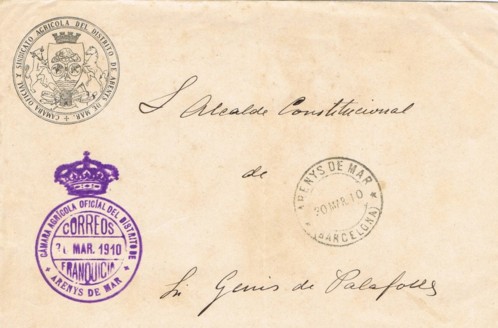 CAMARA OFICIAL Y SINDICATO AGRÍCOLA DEL DISTRITO DE ARENYS DE MAR
S. Alcalde Constitucional
de
ARENYS DE MAR
30 MAR. 10
(BARCELONA)
CÁMARA AGRÍCOLA OFICIAL DEL DISTRITO DE
CORREOS
MAR. 1910
FRANQUICIA
ARENYS DE MAR
Sn. Genis de Palafolls